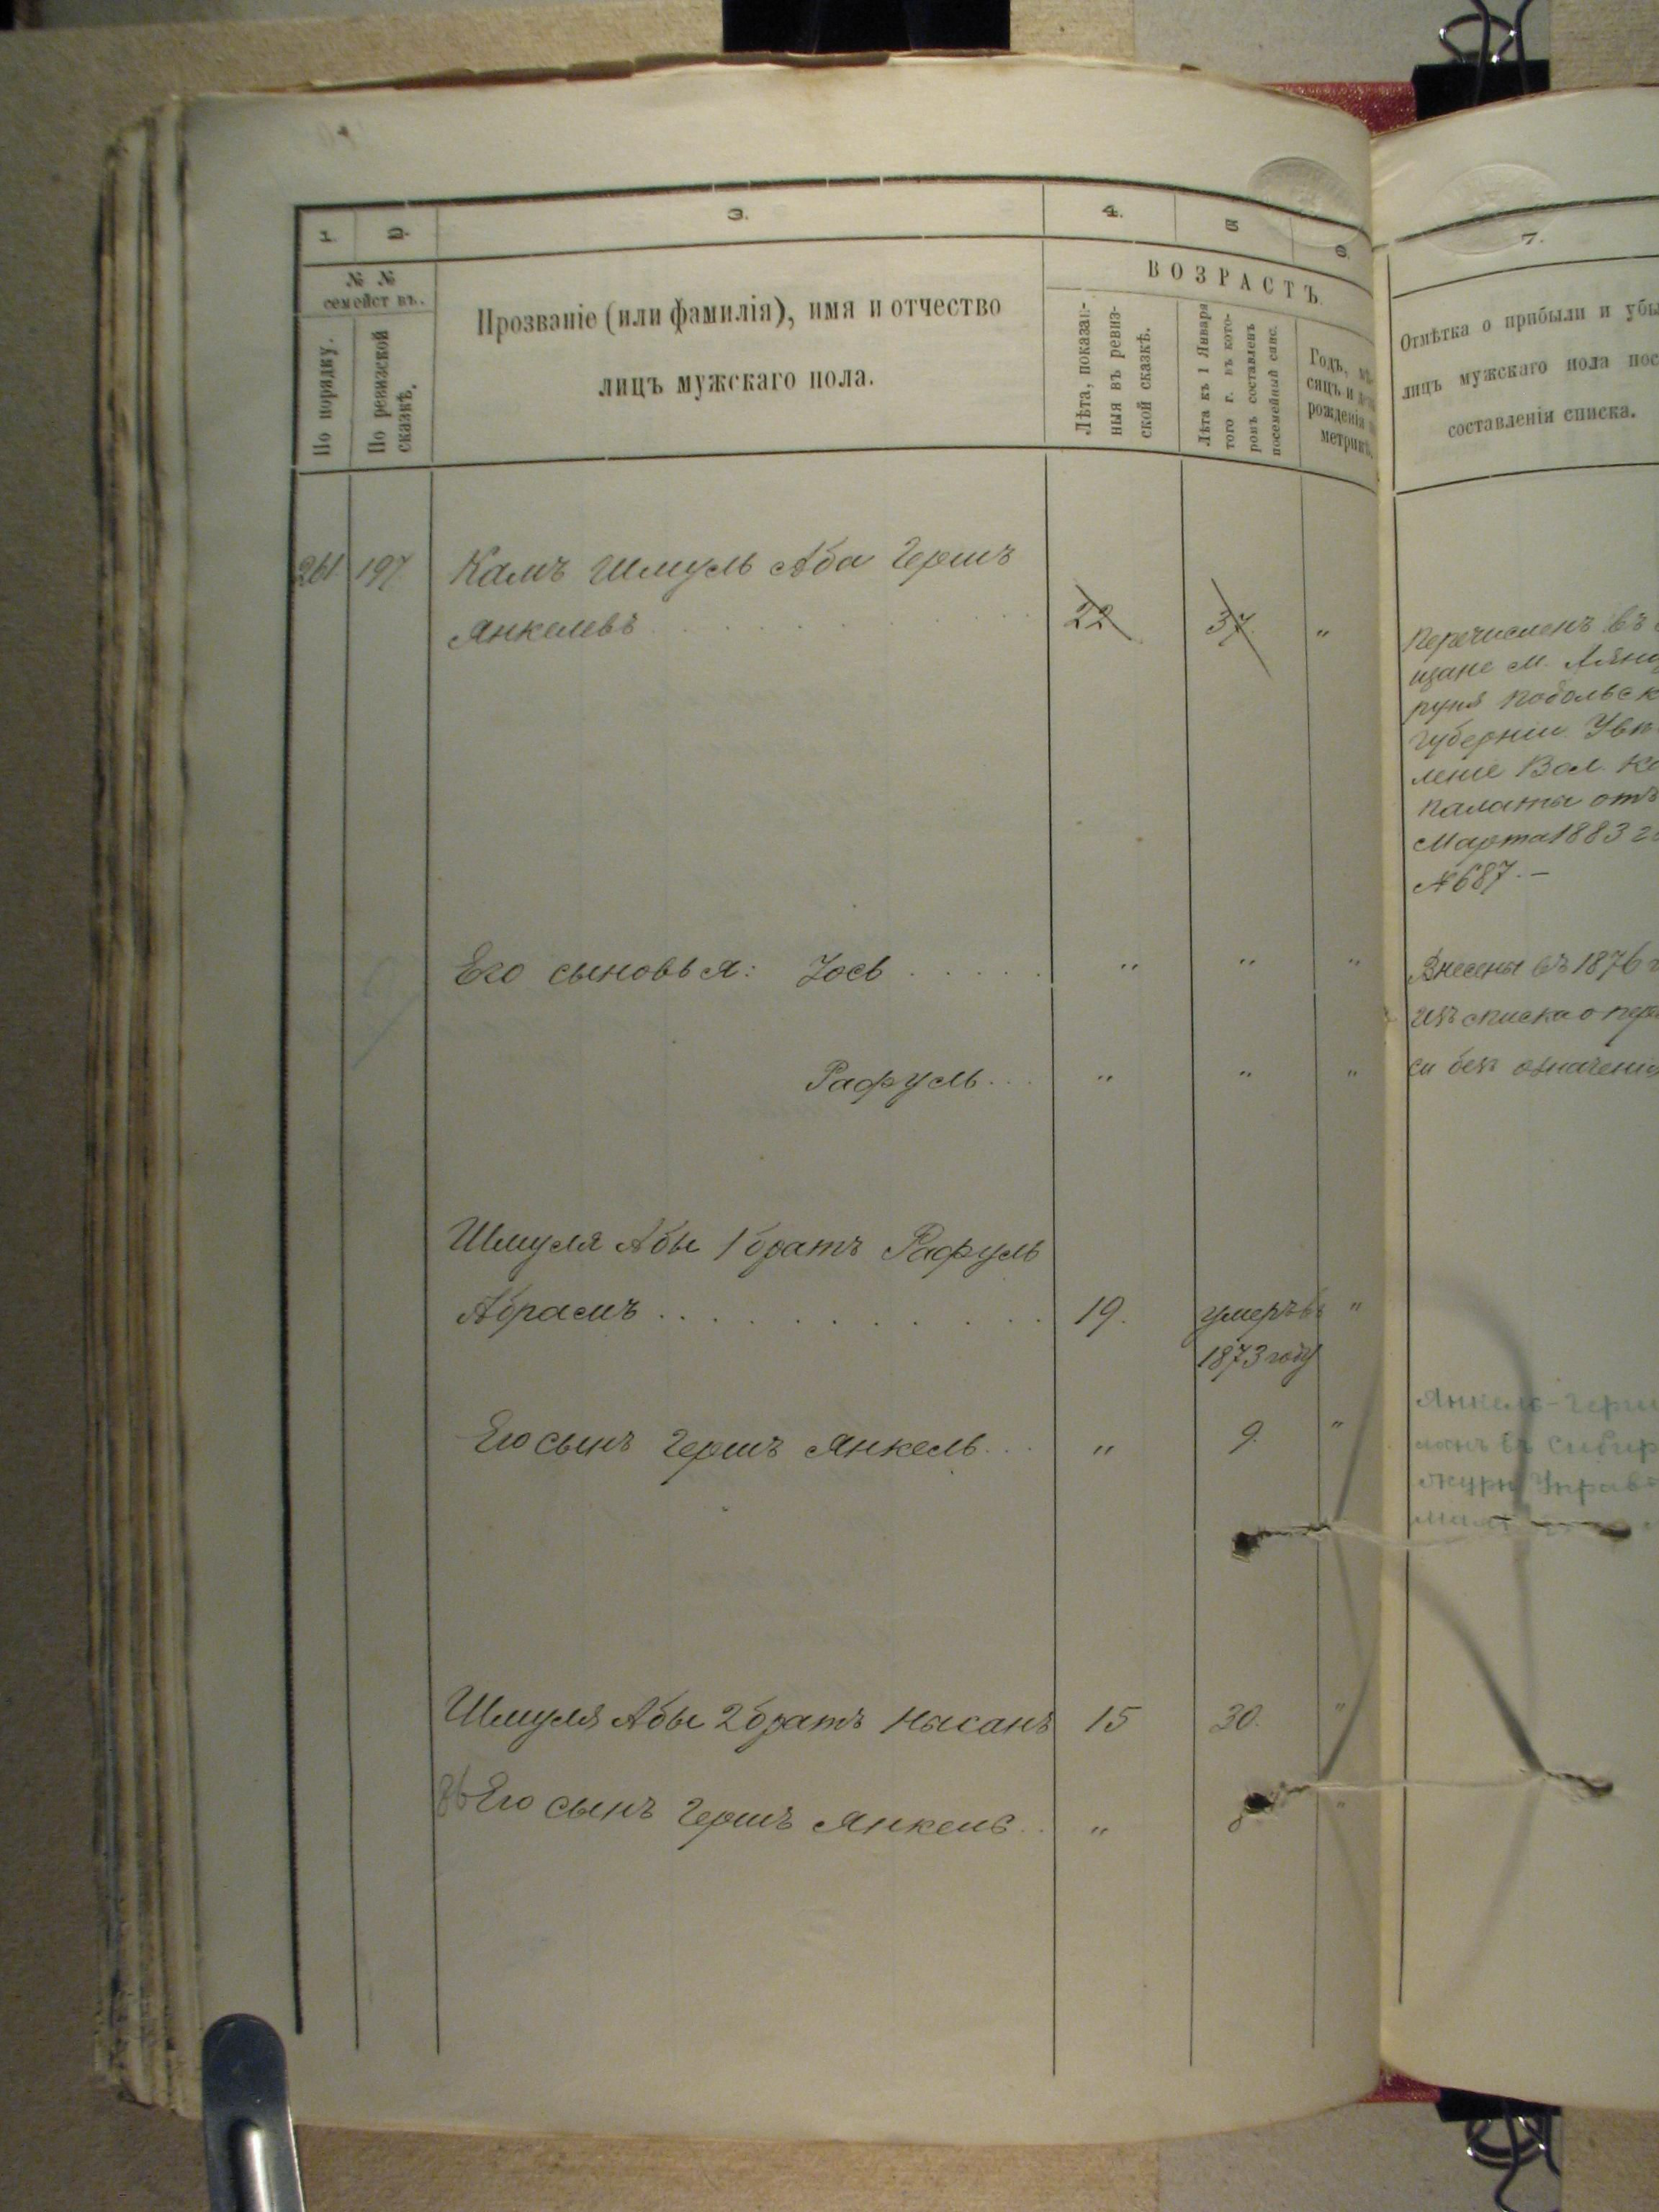 1. 2. 3. 4. 5 6. 7.
№ №
семействъ.
По порядку.
По ревизской
сказкѣ.
Прозваніе (или фамилія), имя и отчество
лицъ мужскаго пола.
ВОЗРАСТЪ.
Лѣта, показан-
ныя въ ревиз-
ской сказкѣ.
Лѣта къ 1 Января
того г. въ кото-
ромъ составленъ
посемейный спис.
Годъ, мѣ-
сяцъ и
рожденія
метрикѣ.
Отмѣтка о прибыли и убы
лицъ мужскаго пола пос
составленіи списка.
261. 197 Камъ Шмуль Аба Гершъ
Янкелевъ 22 37. "
Перечисленъ въ
щане м.
Подольск
губерніи.
леніе Вол. Ка
палаты отъ
Марта 1883 го
№ 687. —
Его сыновья: Іось " " " Внесены въ 1876 г
изъ списка о пере
Рафуль " " " си безъ означенія
Шмуля Абы 1 братъ Рафуль
Абрамъ 19. умеръ въ "
1873 году
Его сынъ Гершъ Янкель " 9. "
Янкель-Герш
въ Сибир
журн Управ
Шмуля Абы 2 братъ Нысанъ 15 30. "
86 Его сынъ Гершъ Янкель " "